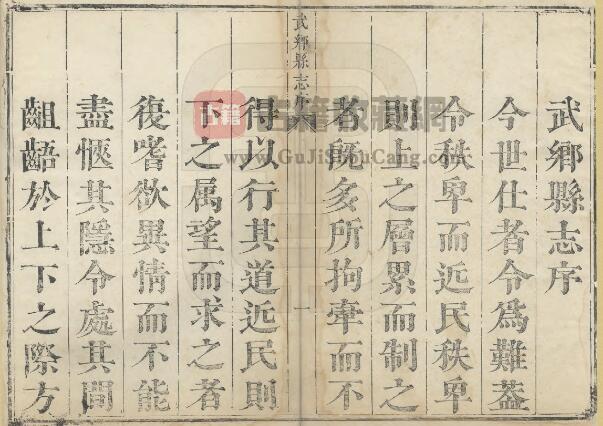 武鄉縣志序
今世仕者令爲難蓋
令秩卑而近民秩卑
則上之層累而制之
者旣多所拘牽而不
武鄉縣志序
一
得以行其道近民則
下之属望而求之者
復嗜欲異情而不能
盡愜其隱令處其間
齟齬於上下之際方
古籍
古籍收藏網
www.GuJiShouCang.com